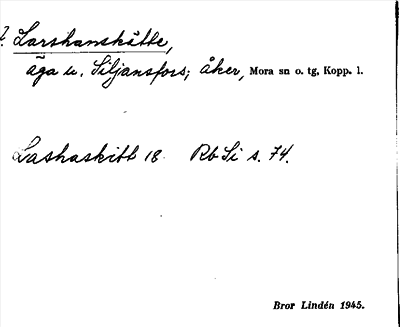 ? Larshansskitte,
äga u. Siljansfors; åker, Mora sn o. tg, Kopp. l.
Lashaskitt 18 Rb Si s. 74.
Bror Lindén 1945.